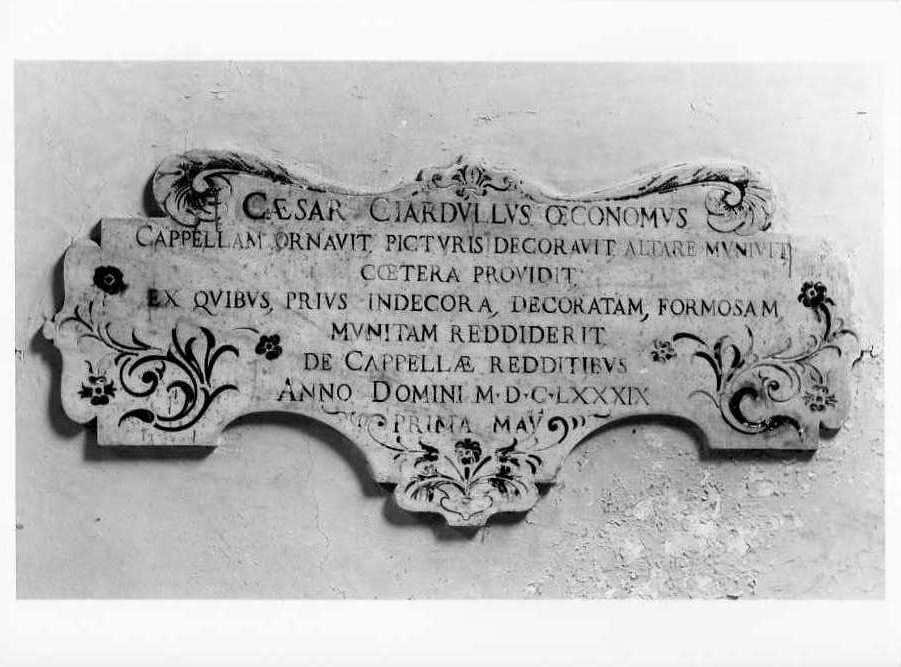 CÆSAR CIARDVLLVS ŒCONOMVS
CAPPELLAM ORNAVIT PICTVRIS DECORAVIT ALTARE MVNIVIT
CŒTERA PROVIDIT,
EX QVIBVS, PRIVS INDECORA, DECORATAM, FORMOSAM
MVNITAM REDDIDERIT
DE CAPPELLÆ REDDITIBVS
ANNO DOMINI M·D·C·LXXXIX
PRIMA MAV